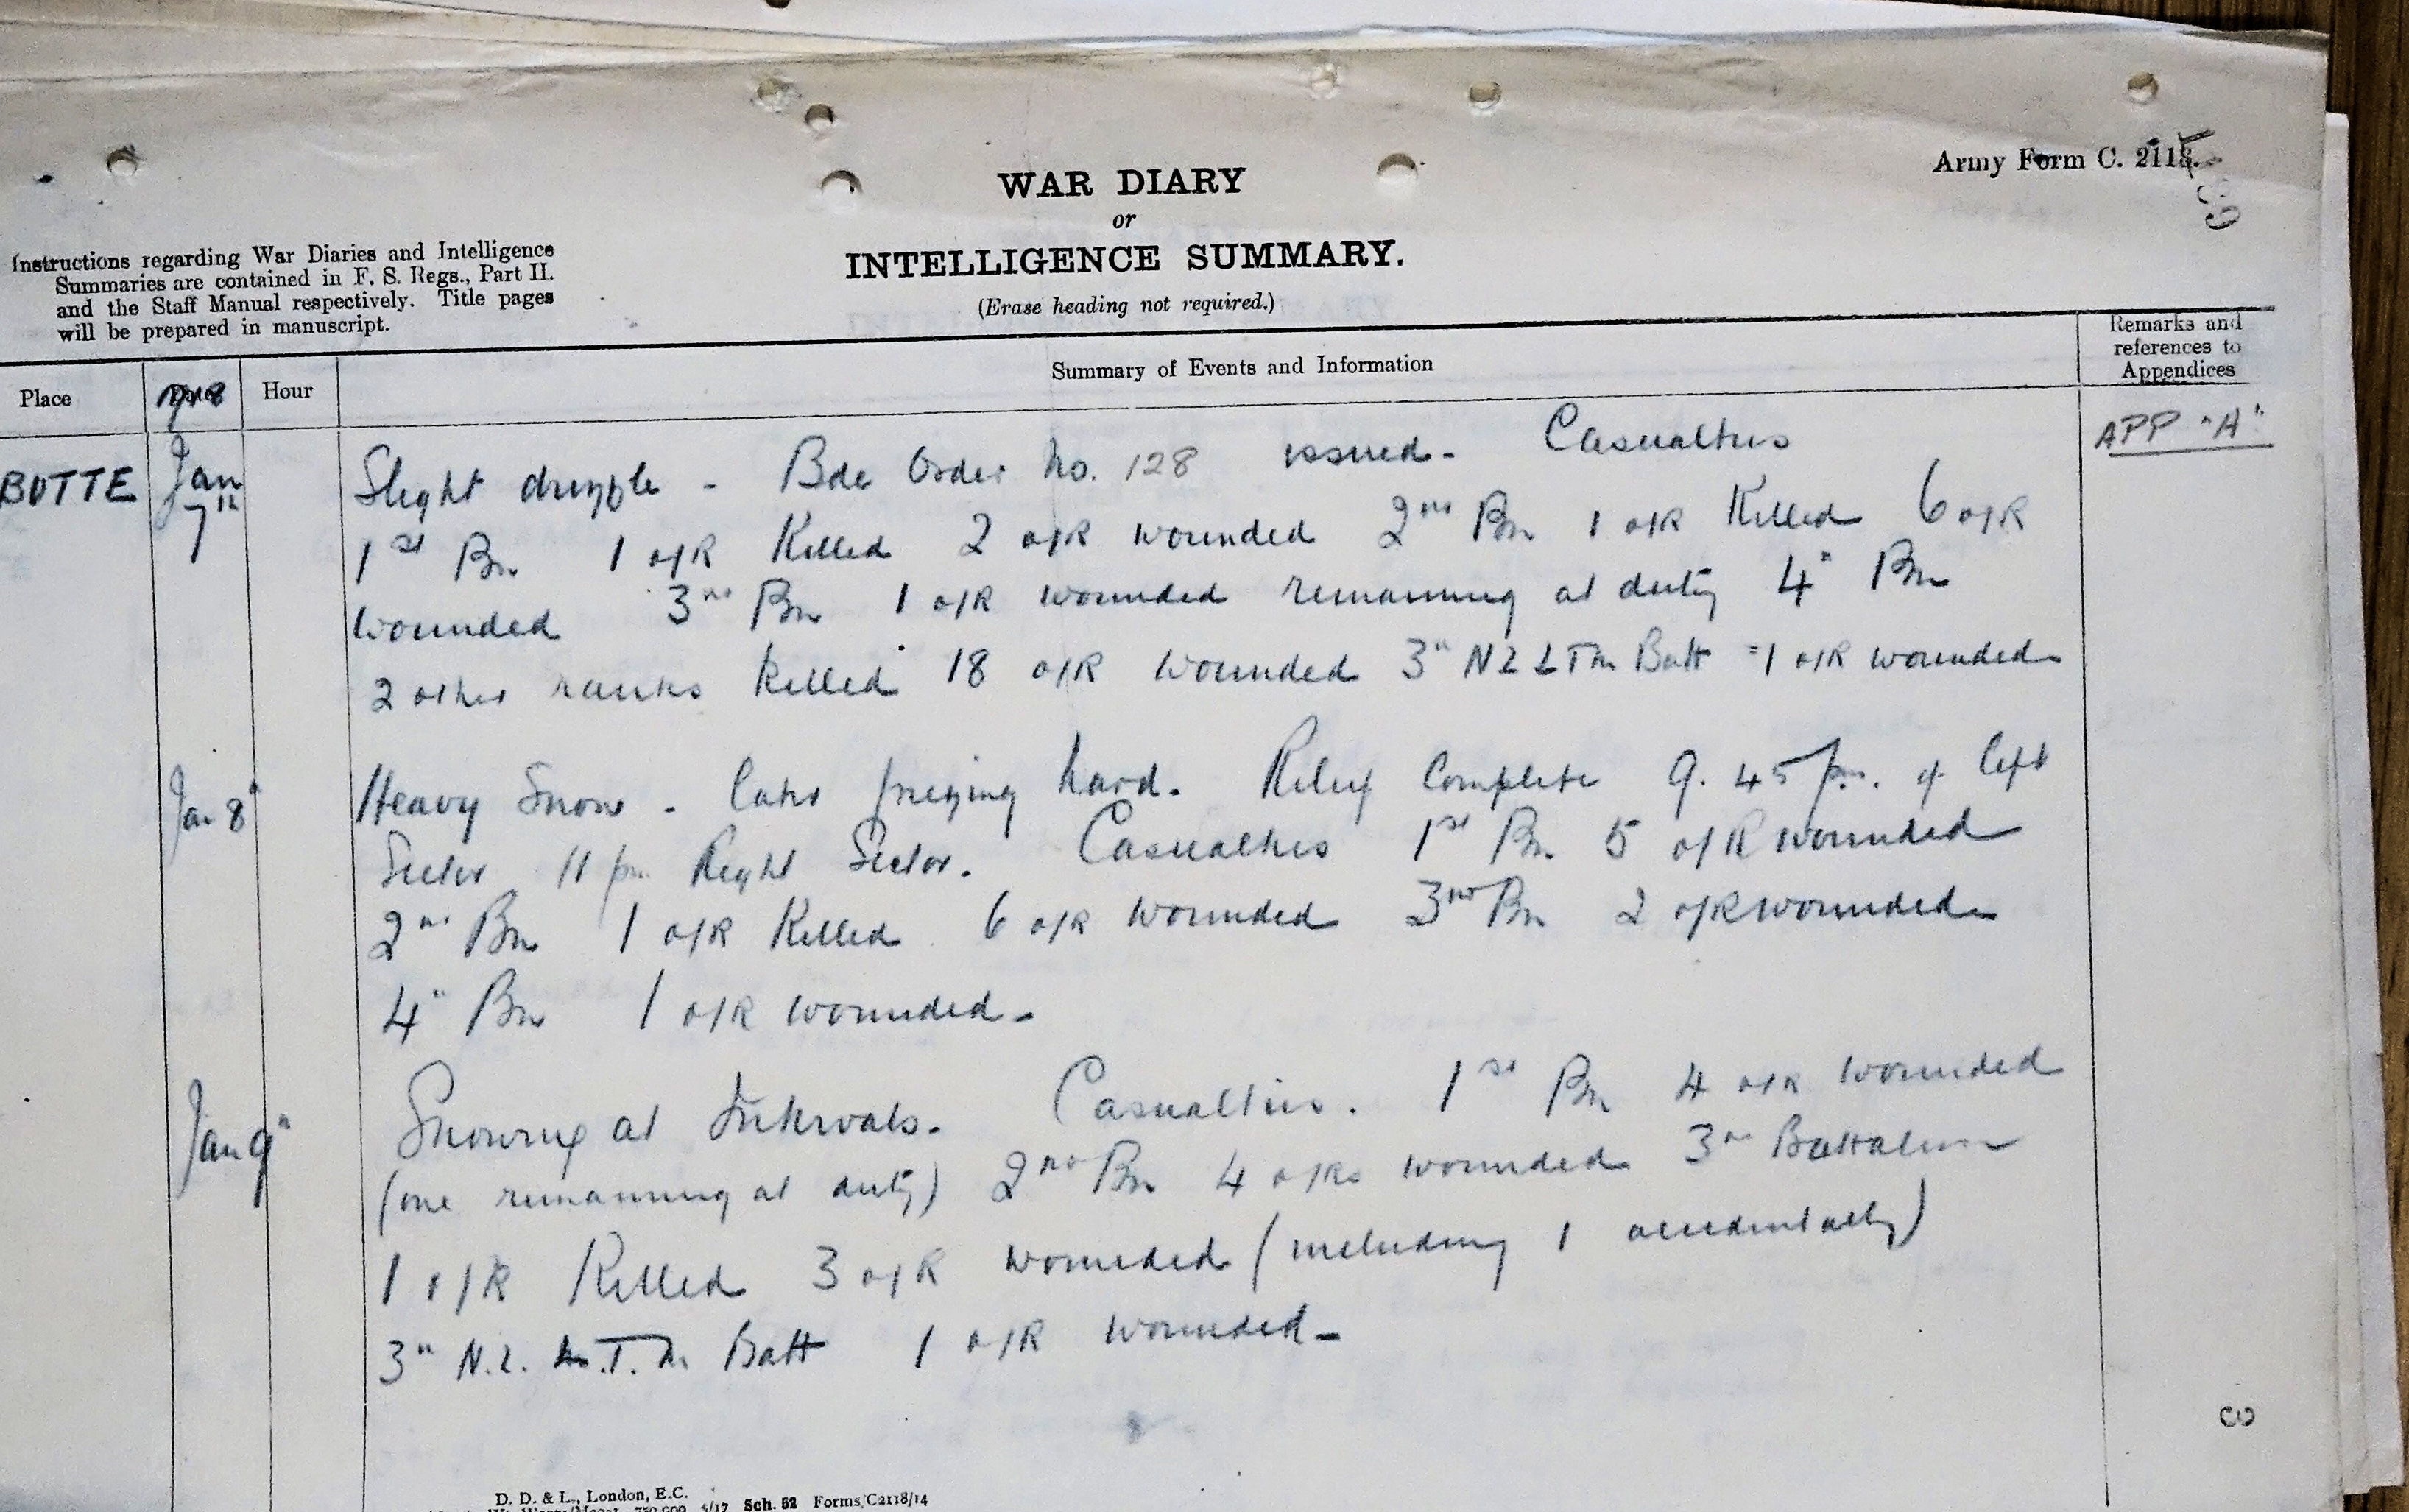 Army Form C. 2118.
WAR DIARY
or
INTELLIGENCE SUMMARY.
(Erase heading not required.)
Instructions regarding War Diaries and Intelligence
Summaries are contained in F. S. Regs., Part II.
and the Staff Manual respectively. Title pages
will be prepared in manuscript.
Place 1918 Hour Summary of Events and Information
Remarks and
references to
Appendices
BUTTE Jan 7th Slight drizzle - Bde Order No. 128 issued - Casualties APP "A"
1st Bn 1 o/R Killed 2 o/R wounded 2nd Bn 1 o/R Killed 6 o/R
wounded 3rd Bn 1 o/R wounded remaining at duty 4" Bn
2 other ranks killed 18 o/R wounded 3" NZLTM Batt 1 o/R wounded
Jan 8" Heavy Snow - later freezing hard. Relief Complete 9.45 pm. of left
Sector 11 pm Right Sector. Casualties 1st Bn. 5 o/R wounded
2nd Bn 1 o/R Killed 6 o/R wounded 3rd Bn 2 o/R wounded
4" Bn 1 o/R wounded -
Jan 9" Snowing at Intervals. Casualties. 1st Bn 4 o/R wounded
(one remaining at duty) 2nd Bn 4 o/Rs wounded 3rd Battalion
1 o/R Killed 3 o/R wounded (including 1 accidentally)
3" N.Z. T.M. Batt 1 o/R wounded -
3
D. D. & L., London, E.C.
5/17 Sch. 52 Forms/C2118/14